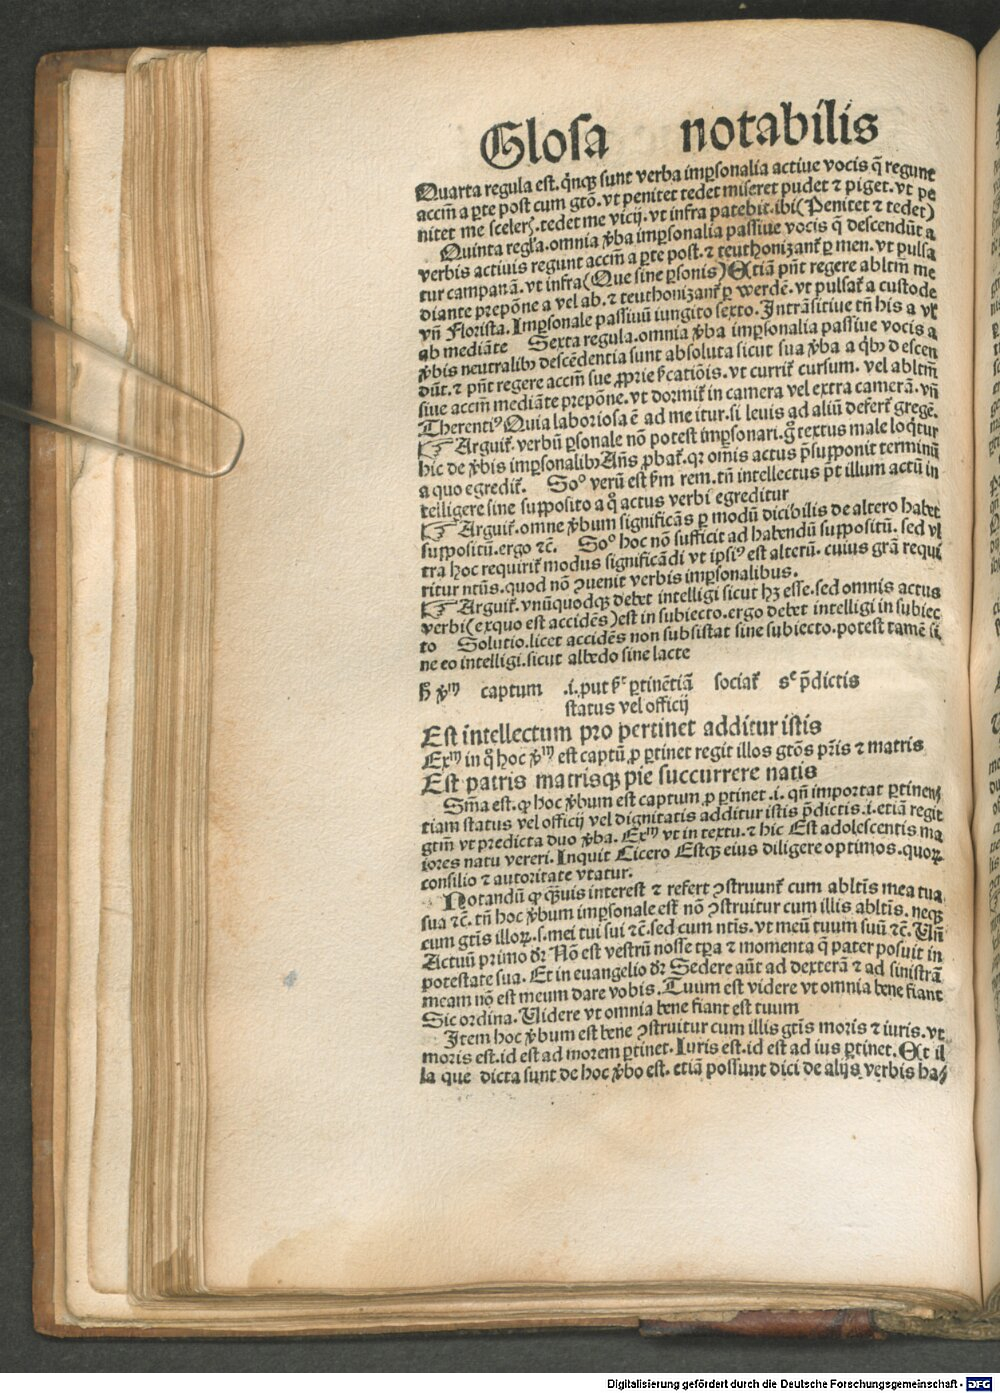 Glosa notabilis
Quarta regula est. q̄nqꝫ sunt verba imꝑsonalia actiue vocis q̄ regunt
accm̄ a ꝑte post cum gtō. vt penitet tedet miseret pudet ⁊ piget. vt pe
nitet me sceleꝝ. tedet me vicij. vt infra patebit. ibi (Penitet ⁊ tedet)
Quinta regl̓a. omnia v̓ba imꝑsonalia passiue vocis q̄ descendūt a
verbis actiuis regunt accm̄ a ꝑte post. ⁊ teuthonizant᷑ ꝑ men. vt pulsa
tur campanā. vt infra (Que sine ꝑsonis) Etiā pn̄t regere abltm̄ me
diante prepōne a vel ab. ⁊ teuthonizant᷑ ꝑ werdē. vt pulsat᷑ a custode
vn̄ Florista. Imꝑsonale passiuū iungito sexto. Intrāsitiue tn̄ his a vl̓
ab mediāte Sexta regula. omnia v̓ba imꝑsonalia passiue vocis a
v̓bis neutralibꝫ descēdentia sunt absoluta sicut sua v̓ba a qͥbꝫ descen
dūt. ⁊ pn̄t regere accm̄ sue ꝓprie ẜcatiōis. vt currit᷑ cursum. vel abltm̄
siue accm̄ mediāte prepōne. vt dormit᷑ in camera vel extra camerā. vn̄
Therentiꝰ Quia laboriosa ē ad me itur. si leuis ad aliū defert᷑ gregē.
☞ Arguit᷑. verbū ꝑsonale nō potest imꝑsonari. gͦ textus male loqͥtur
hic de v̓bis imꝑsonalibꝫ Ans̄ ꝓbat᷑. qꝛ om̄is actus p̄supponit terminū
a quo egredit᷑. Soͦ verū est ẜm rem. tn̄ intellectus pt̄ illum actū in
telligere sine supposito a qͦ actus verbi egreditur
☞ Arguit᷑. omne v̓bum significās ꝑ modū dicibilis de altero habet
suppositū. ergo ⁊c̄. Soͦ hoc nō sufficit ad habendū suppositū. sed vl
tra hoc requirit᷑ modus significādi vt ipsiꝰ est alterū. cuius grā requi
ritur ntūs. quod nō ↄuenit verbis imꝑsonalibus.
☞ Arguit᷑. vnūquodqꝫ debet intelligi sicut hꝫ esse. sed omnis actus
verbi (exquo est accidēs) est in subiecto. ergo debet intelligi in subiec
to Solutio. licet accidēs non subsistat sine subiecto. potest tamē si
ne eo intelligi. sicut albedo sine lacte
h̄ v̓ᵐ captum .i. put ẜᶜ ꝑtinētiā sociat᷑ sᶜ p̄dictis
status vel officij
Est intellectum pro pertinet additur istis
Exᵐ in qͦ hoc v̓ᵐ est captū ꝓ ꝑtinet regit illos gtōs pr̄is ⁊ matris
Est patris matrisqꝫ pie succurrere natis
Sm̄a est. ꝙ hoc v̓bum est captum ꝓ ꝑtinet .i. qn̄ importat ꝑtinen
tiam status vel officij vel dignitatis additur istis p̄dictis .i. etiā regit
gtm̄ vt predicta duo v̓ba. Exᵐ vt in textu. ⁊ hic Est adolescentis ma
iores natu vereri. Inquit Cicero Estqꝫ eius diligere optimos. quoꝝ
consilio ⁊ autoritate vtatur.
Notandū ꝙ qͣꝫuis interest ⁊ refert ↄstruunt᷑ cum abltīs mea tua
sua ⁊c̄. tn̄ hoc v̓bum imꝑsonale est nō ↄstruitur cum illis abltīs. neqꝫ
cum gtīs illoꝝ. s. mei tui sui ⁊c̄. sed cum ntīs. vt meū tuum suū ⁊c̄. Vn̄
Actuū primo dr̄ Nō est vestrū nosse tꝑa ⁊ momenta q̄ pater posuit in
potestate sua. Et in euangelio dr̄ Sedere aūt ad dexterā ⁊ ad sinistrā
meam nō est meum dare vobis. Tuum est videre vt omnia bene fiant
Sic ordina. Videre vt omnia bene fiant est tuum
Item hoc v̓bum est bene ↄstruitur cum illis gtīs moris ⁊ iuris. vt
moris est. id est ad morem ꝑtinet. Iuris est. id est ad ius ꝑtinet. Et il
la que dicta sunt de hoc v̓bo est. etiā possunt dici de alijs verbis ha⸗
Digitalisierung gefördert durch die Deutsche Forschungsgemeinschaft - DFG